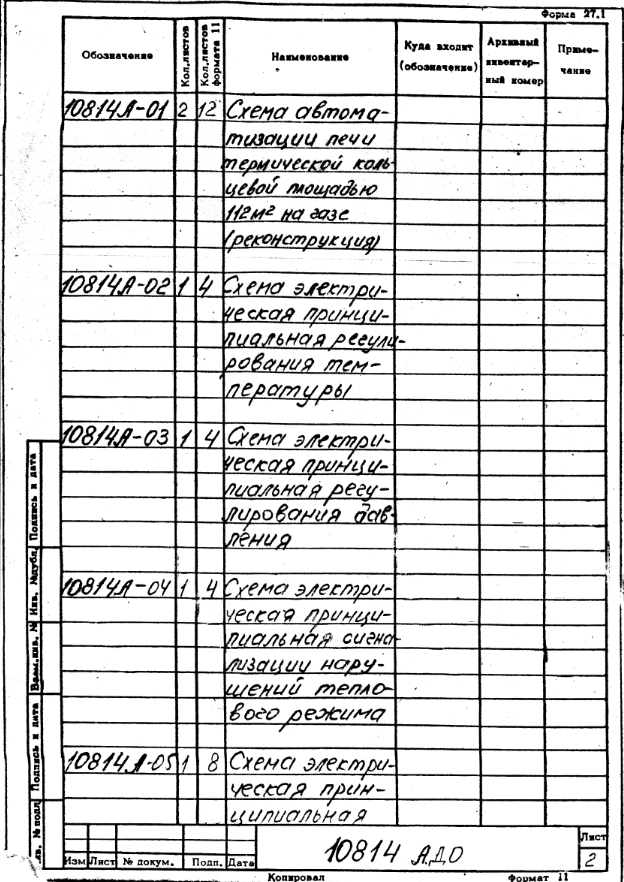 Форма 27.1
Обозначение Кол.листов Кол.листов формата 11 Наименование Куда входит (обозначение) Архивный инвентарный номер Примечание
10814А-01 2 12 Схема автома-
тизации печи
термической коль-
цевой площадью
112м² на газе
(реконструкция)
10814А-02 1 4 Схема электри-
ческая принци-
пиальная регули-
рования тем-
пературы
10814А-03 1 4 Схема электри-
ческая принци-
пиальная регу-
лирования дав-
ления
10814А-04 1 4 Схема электри-
ческая принци-
пиальная сигна-
лизации нару-
шений тепло-
вого режима
10814А-05 1 8 Схема электри-
ческая прин-
ципиальная
Инв. № подл. Подпись и дата Взам.инв. № Инв. №дубл. Подпись и дата
Изм Лист № докум. Подп. Дата
10814 АДО
Лист
2
Копировал Формат 11